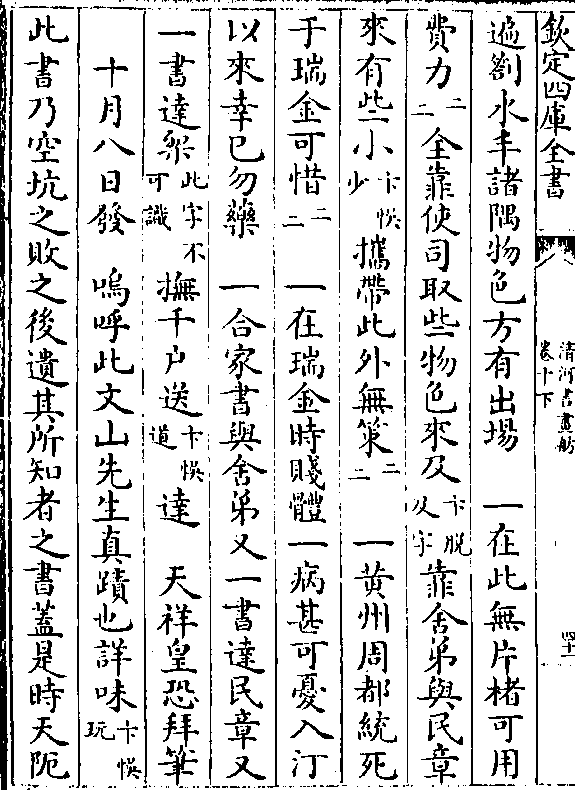 欽定四庫全書
清河書畫舫
卷十下
四十一
遍劄水手諸隅物色方有出場　一在此無片楮可用
費力二二全靠使司取些物色來及卞脫及字靠舍弟與民章
來有些小卞悞少攜帶此外無策二二　一黄州周都統死
于瑞金可惜二二　一在瑞金時賤體一病甚可憂入汀
以來幸已勿藥　一合家書與舍弟又一書達民章又
一書達此字不可識撫千户送卞悞道達　天祥皇恐拜筆
十月八日發　嗚呼此文山先生真蹟也詳味卞悞玩
此書乃空坑之敗之後遺其所知者之書蓋是時天阨